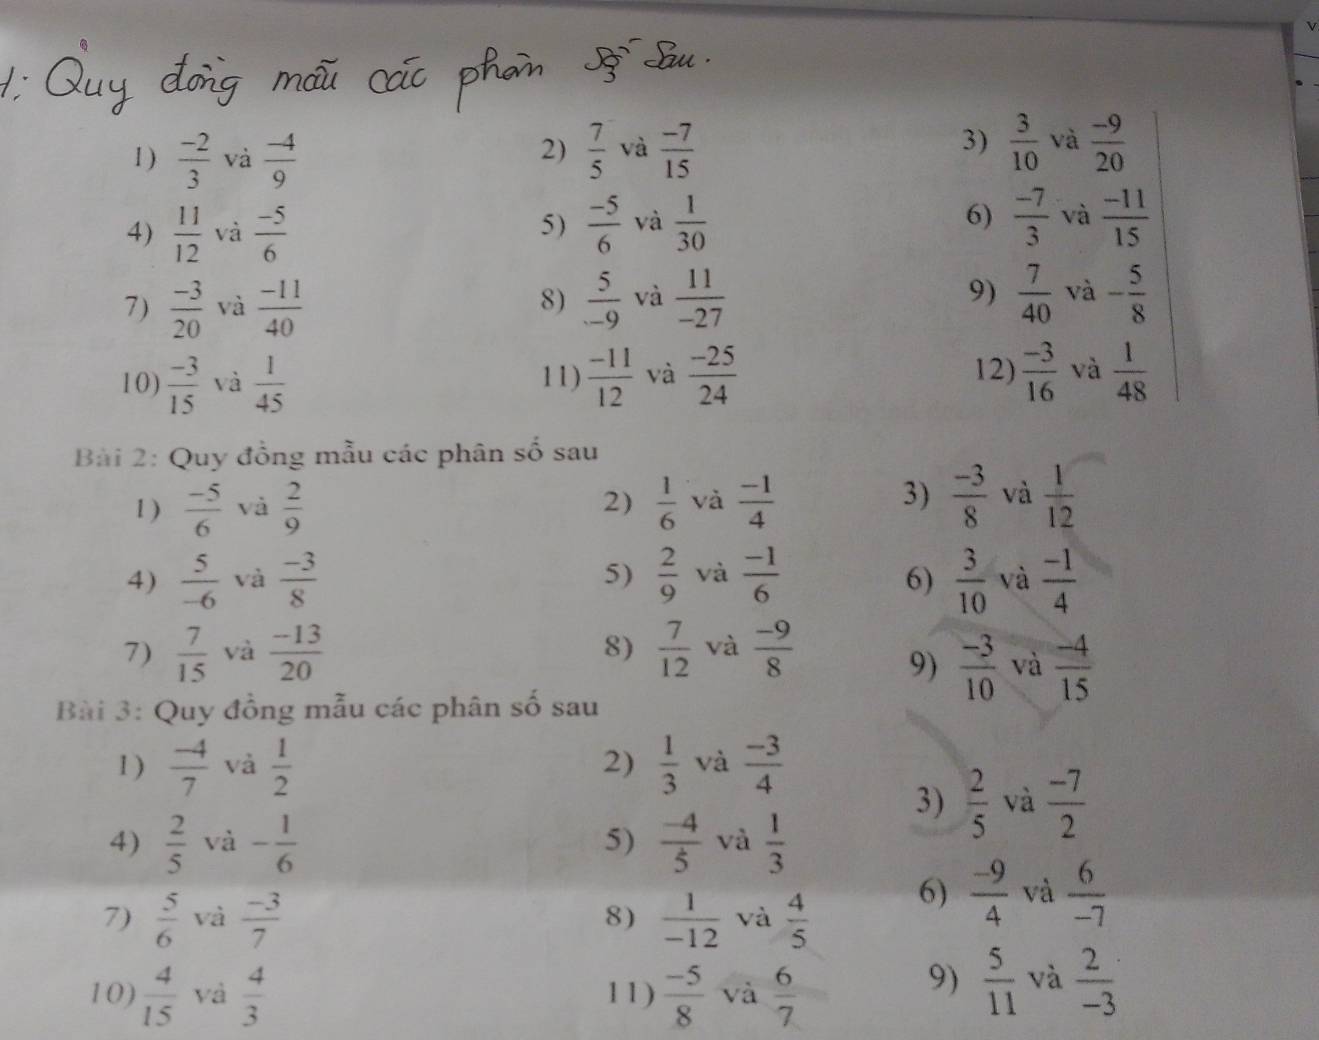 1: Quy đồng mẫu các phân số sau.
1) -2/3 và -4/9 2) 7/5 và -7/15 3) 3/10 và -9/20
4) 11/12 và -5/6 5) -5/6 và 1/30 6) -7/3 và -11/15
7) -3/20 và -11/40 8) 5/-9 và 11/-27 9) 7/40 và -5/8
10) -3/15 và 1/45 11) -11/12 và -25/24 12) -3/16 và 1/48
Bài 2: Quy đồng mẫu các phân số sau
1) -5/6 và 2/9 2) 1/6 và -1/4 3) -3/8 và 1/12
4) 5/-6 và -3/8 5) 2/9 và -1/6 6) 3/10 và -1/4
7) 7/15 và -13/20 8) 7/12 và -9/8 9) -3/10 và -4/15
Bài 3: Quy đồng mẫu các phân số sau
1) -4/7 và 1/2 2) 1/3 và -3/4 3) 2/5 và -7/2
4) 2/5 và -1/6 5) -4/5 và 1/3 6) -9/4 và 6/-7
7) 5/6 và -3/7 8) 1/-12 và 4/5 9) 5/11 và 2/-3
10) 4/15 và 4/3 11) -5/8 và 6/7